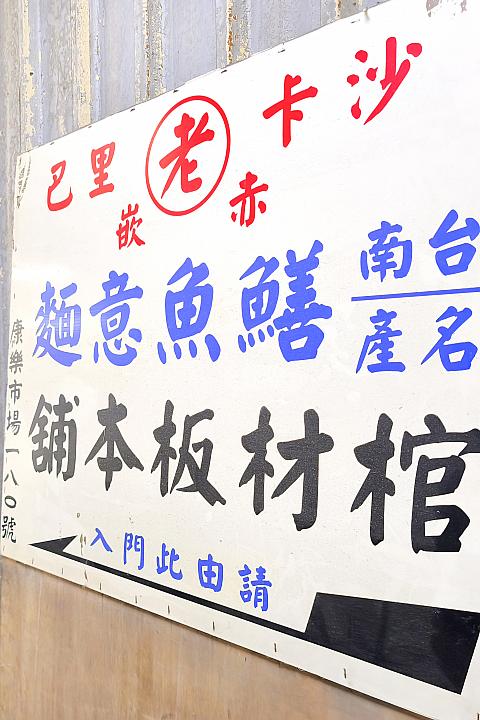 沙卡老里巴
赤嵌
台南
名產
鱔魚意麵
棺材板本舖
請由此門入
康樂市場一八〇號